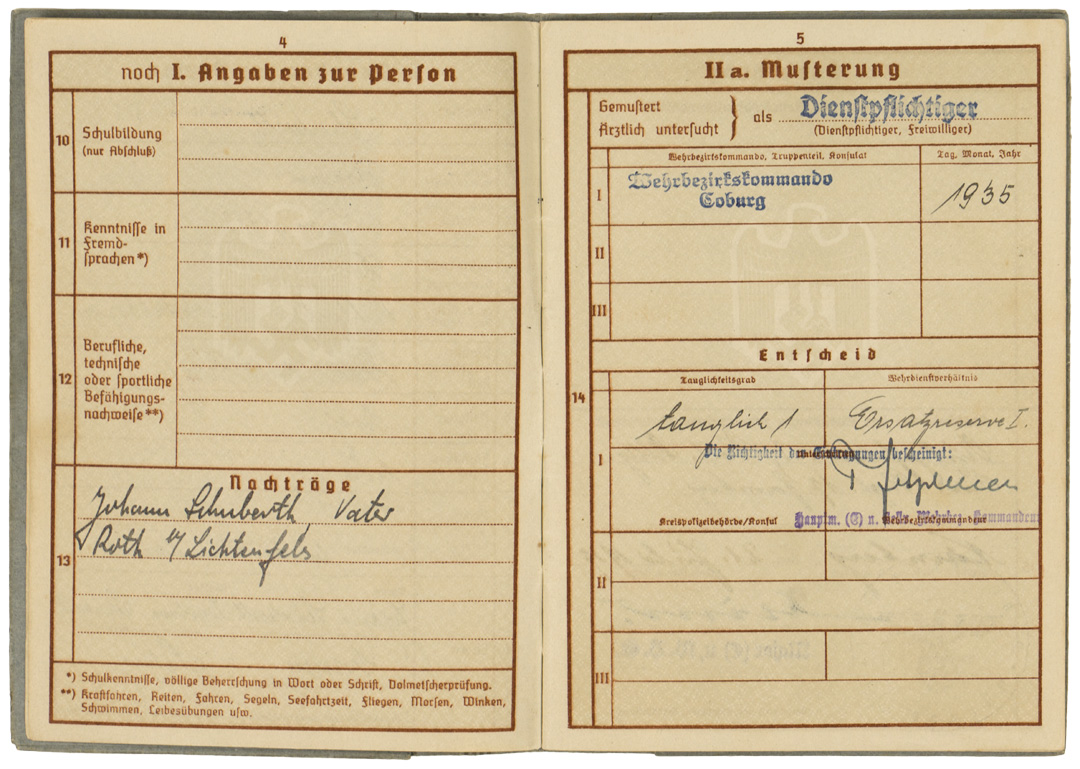 4
noch I. Angaben zur Person
10
Schulbildung
(nur Abschluß)
11
Kenntnisse in
Fremd-
sprachen *)
12
Berufliche,
technische
oder sportliche
Befähigungs-
nachweise **)
Nachträge
13
Johann Schuberth Vater
Roth b/ Lichtenfels
*) Schulkenntnisse, völlige Beherrschung in Wort oder Schrift, Dolmetscherprüfung.
**) Kraftfahren, Reiten, Fahren, Segeln, Seefahrtzeit, Fliegen, Morsen, Winken,
Schwimmen, Leibesübungen usw.
5
II a. Musterung
Gemustert
Ärztlich untersucht } als Dienstpflichtiger
(Dienstpflichtiger, Freiwilliger)
Wehrbezirkskommando, Truppenteil, Konsulat
Tag, Monat, Jahr
I
Wehrbezirkskommando
Coburg
1935
II
III
Entscheid
14
Tauglichkeitsgrad
Wehrdienstverhältnis
I
tauglich 1
Ersatzreserve I.
Die Richtigkeit der Eintragungen bescheinigt:
Kreispolizeibehörde/Konsul
Hauptm. (E) u.
Wehrbezirkskommandeur
II
III